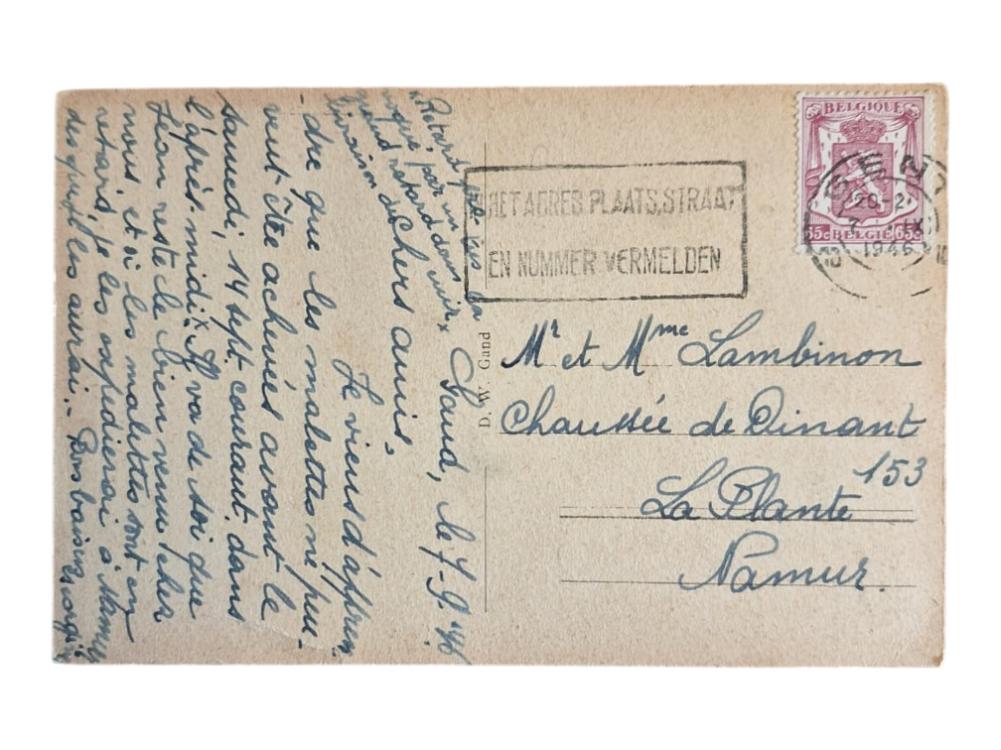 Gand, le 7-9-46
Chers amis,
Je viens d'appren
-dre que les malettes ne peu-
vent être achevées avant le
samedi, 14 sept courant dans
l'après-midi. Il va de soi que
Jean reste le bien venu chez
nous et si les malettes sont en
retard, je les expédierai à Namur
dès qu'elles aurai.- Bons baisers
Retard
par un
grand retard dans
livraison
D. W. Gand
HET ADRES PLAATS, STRAAT
EN NUMMER VERMELDEN
BELGIQUE
65c BELGIE 65c
GENT
20-2
1946
Mr et Mme Lambinon
Chaussée de Dinant
153
La Plante
Namur.